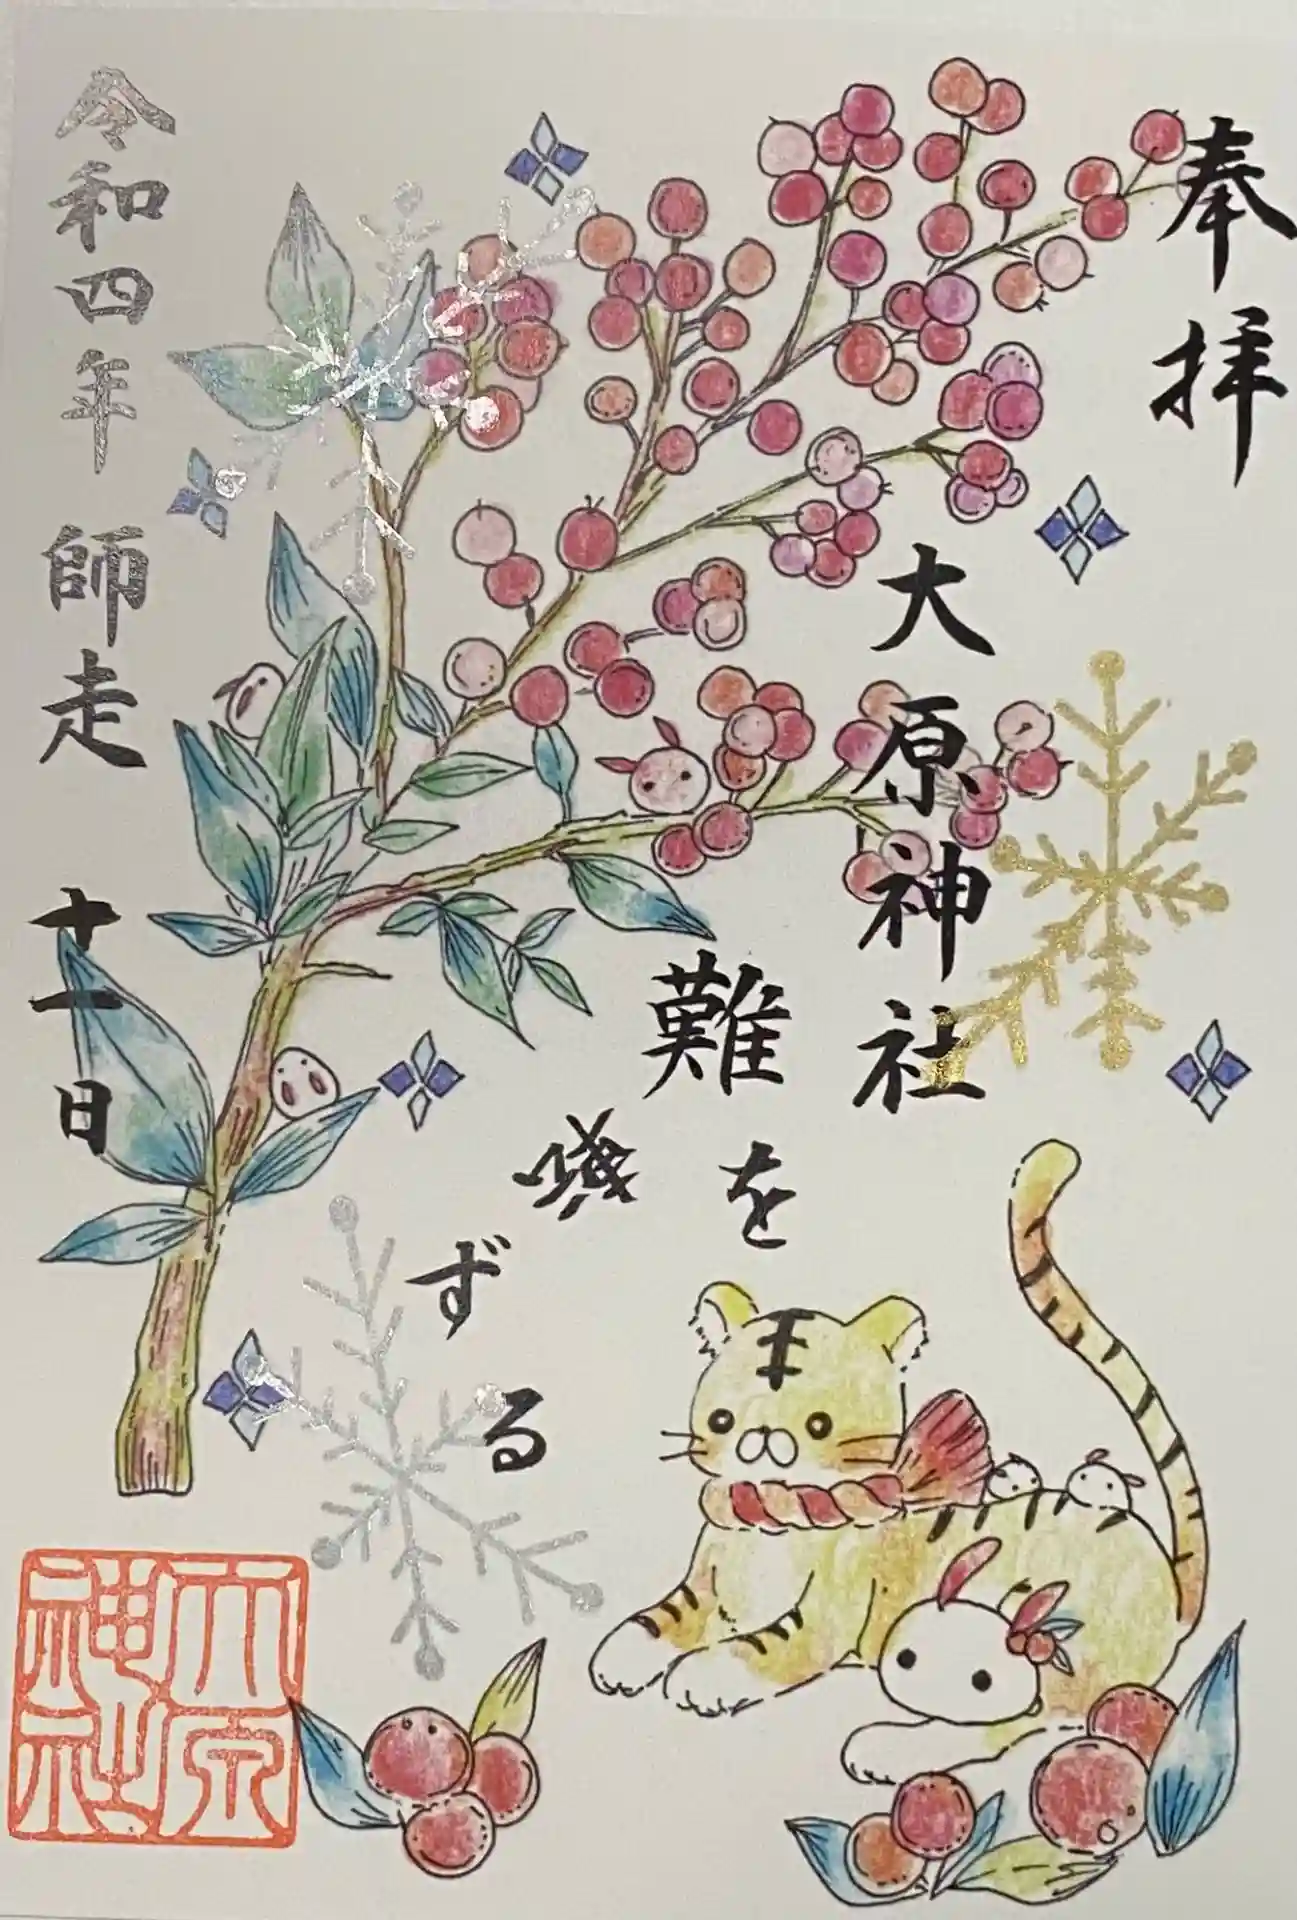 奉拝
大原神社
難を
転
ずる
令和四年 師走 十一日
大原
神社